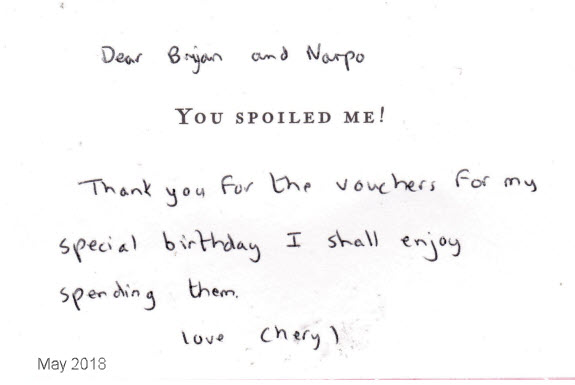 Dear Bryan and Narpo
YOU SPOILED ME!
Thank you for the vouchers for my
special birthday I shall enjoy
spending them.
love Cheryl
May 2018